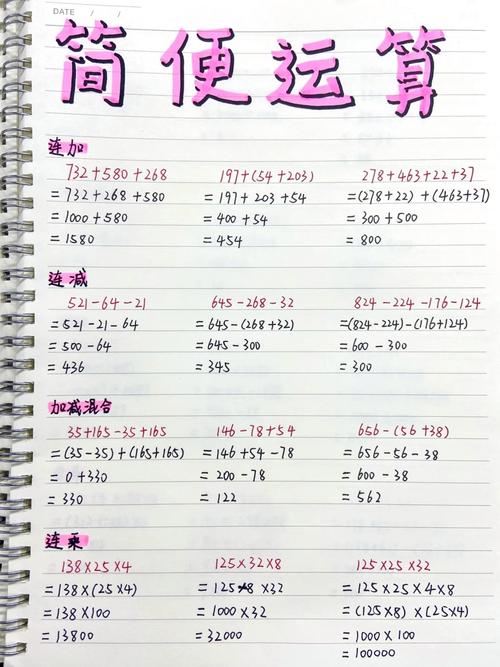 DATE / /
简便运算
连加
732+580+268 197+(54+203) 278+463+22+37
=732+268+580 =197+203+54 =(278+22)+(463+37)
=1000+580 =400+54 =300+500
=1580 =454 =800
连减
521-64-21 645-268-32 824-224-176-124
=521-21-64 =645-(268+32) =(824-224)-(176+124)
=500-64 =645-300 =600-300
=436 =345 =300
加减混合
35+165-35+165 146-78+54 656-(56+38)
=(35-35)+(165+165) =146+54-78 =656-56-38
=0+330 =200-78 =600-38
=330 =122 =562
连乘
138×25×4 125×32×8 125×25×32
=138×(25×4) =125×8×32 =125×25×4×8
=138×100 =1000×32 =(125×8)×(25×4)
=13800 =32000 =1000×100
=100000